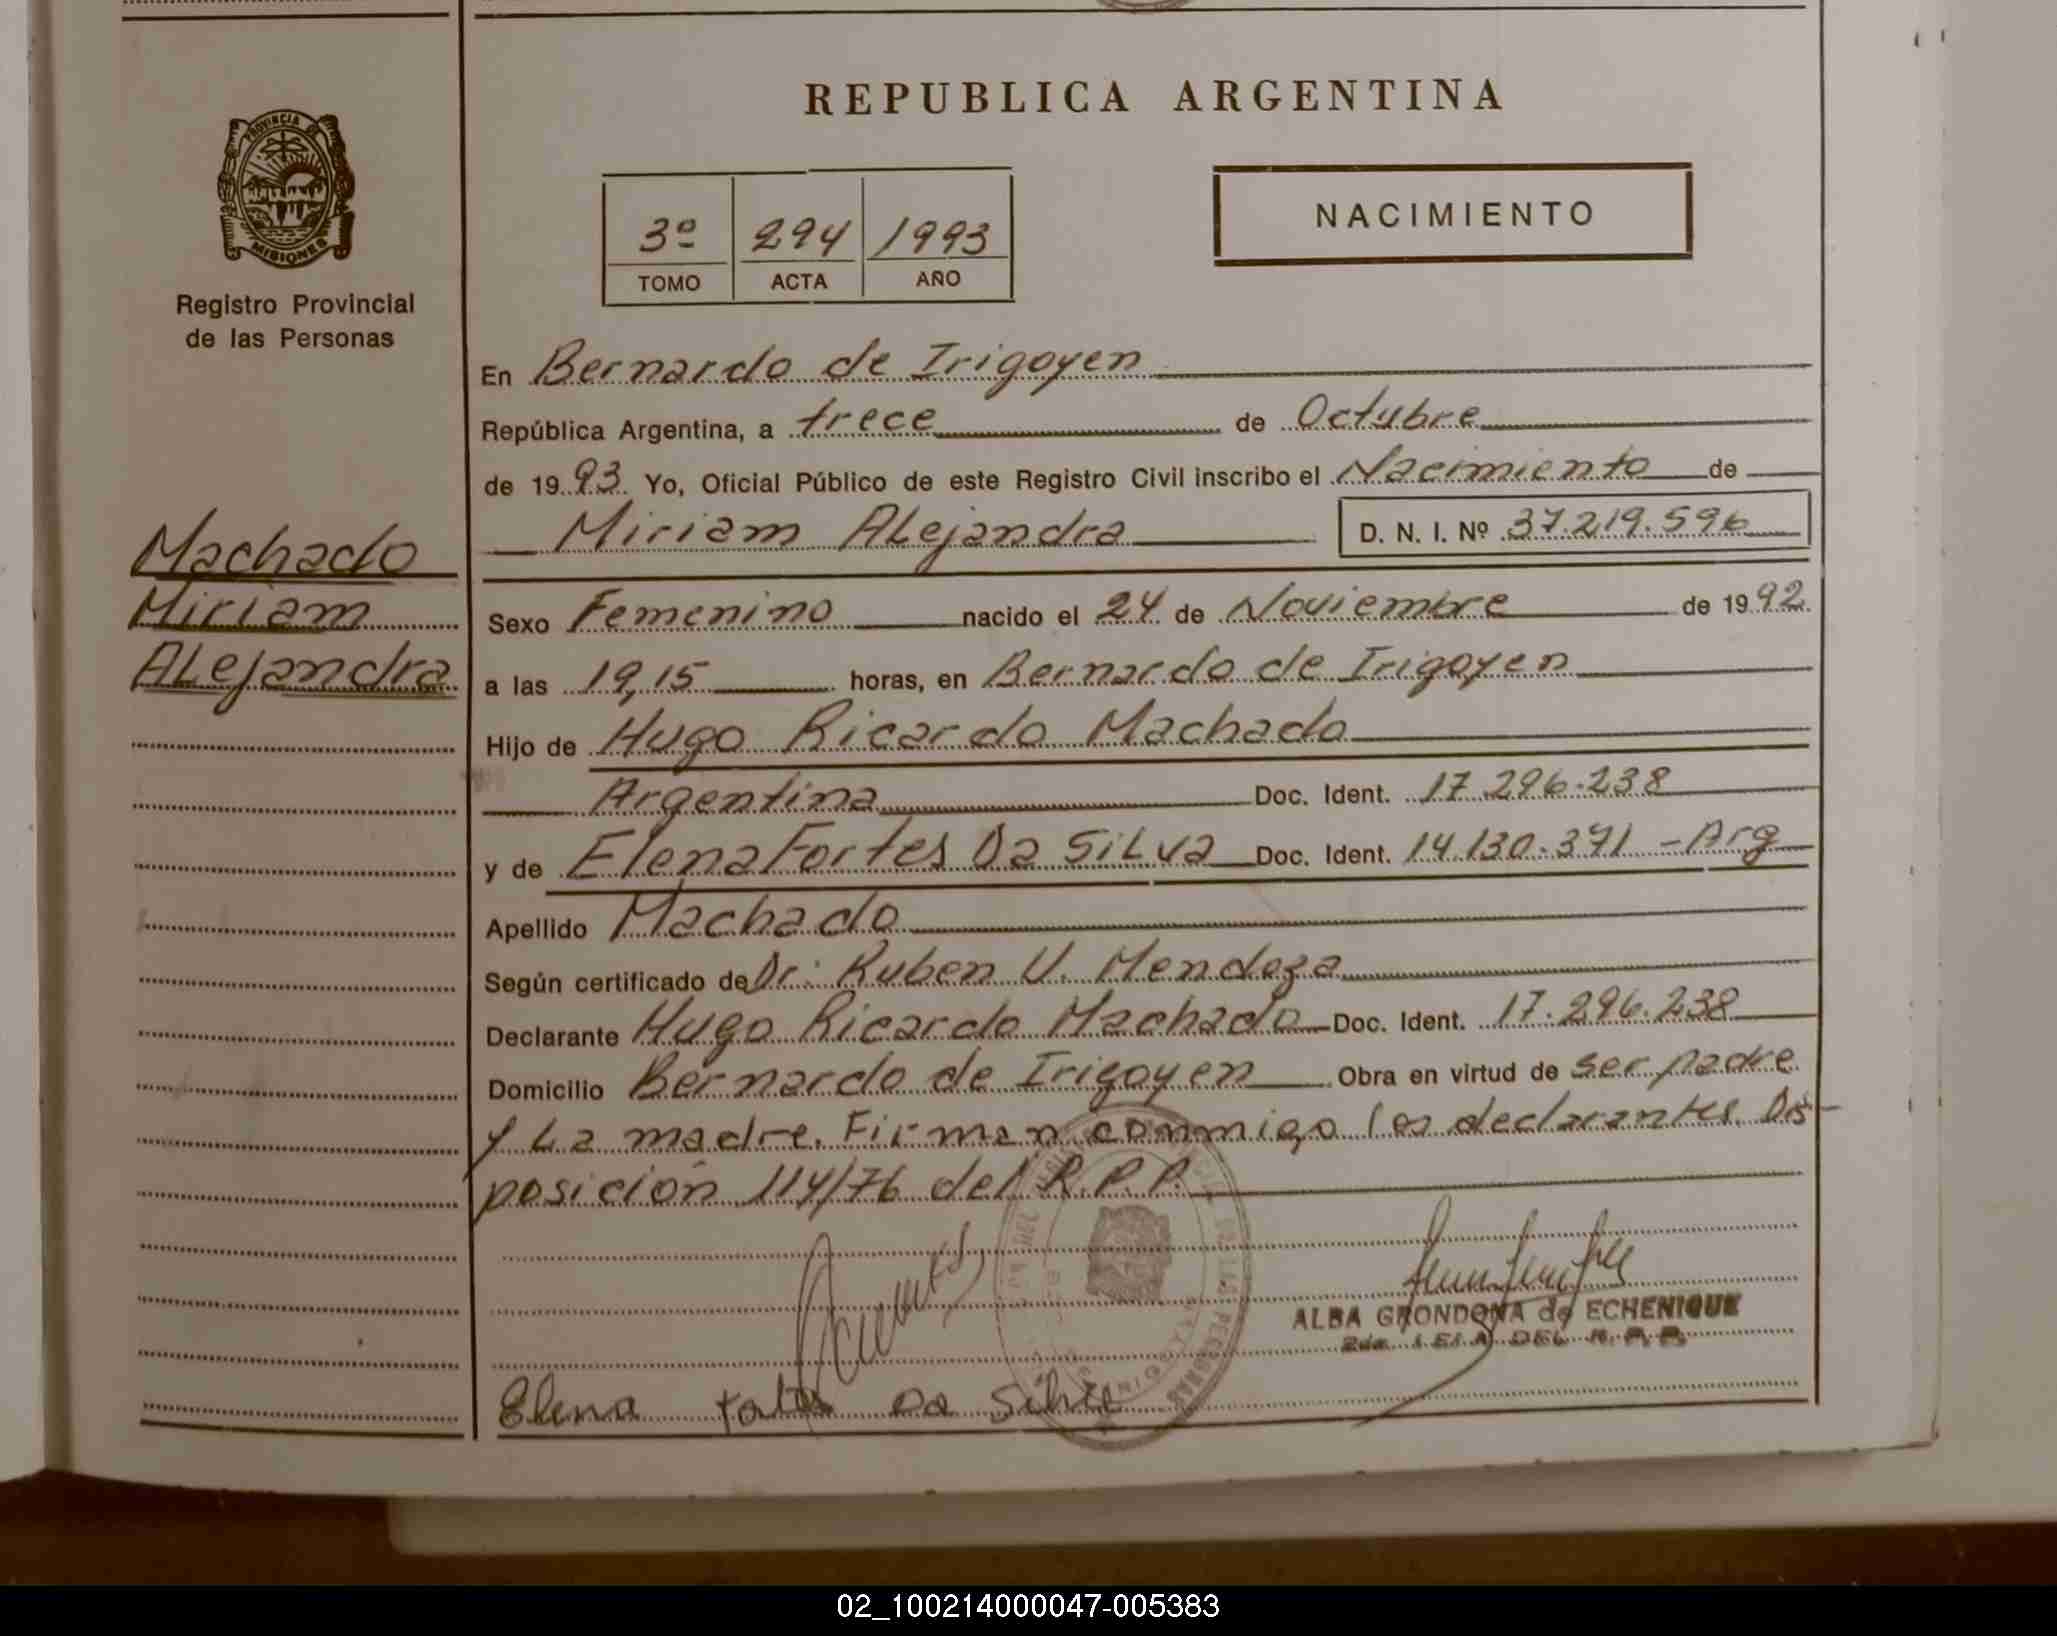 REPUBLICA ARGENTINA
PROVINCIA DE
MISIONES
Registro Provincial
de las Personas
3º 294 1993
TOMO ACTA AÑO
NACIMIENTO
En Bernardo de Irigoyen
República Argentina, a trece de Octubre
de 1993 Yo, Oficial Público de este Registro Civil inscribo el Nacimiento de
Miriam ALejandra D. N. I. Nº 37.219.596
Machado
Miriam
ALejandra
Sexo Femenino nacido el 24 de Noviembre de 1992
a las 19,15 horas, en Bernardo de Irigoyen
Hijo de Hugo Ricardo Machado
Argentina Doc. Ident. 17.296.238
y de Elena Fortes Da SiLva Doc. Ident. 14.130.371 - Arg
Apellido Machado
Según certificado de Dr: Ruben U. Mendoza
Declarante Hugo Ricardo Machado Doc. Ident. 17.296.238
Domicilio Bernardo de Irigoyen Obra en virtud de ser padre
y La madre. Firman conmigo los declarantes. Dis-
posición 114/76 del R.P.P.
ALBA GRONDONA de ECHENIQUE
DEL R.P.P.
Elena Da Silva
02_100214000047-005383